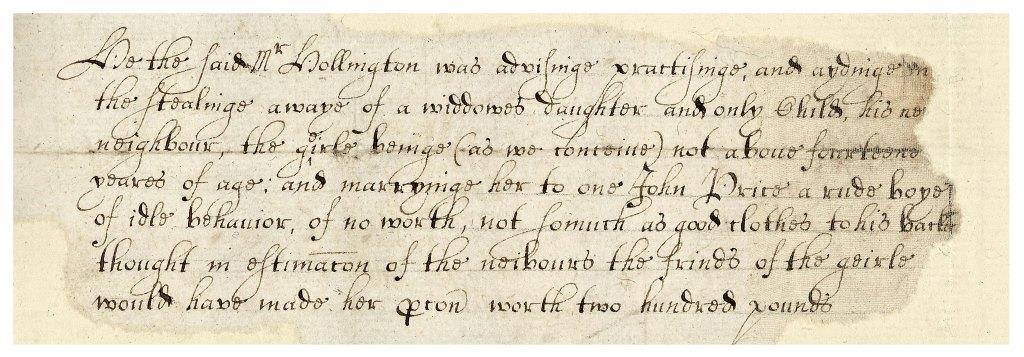 He the said Mr Hollington was advisinge practisinge, and aydinge in
the stealinge awaye of a widdowes daughter and only Child, his ne
neighbour, the geirle beinge (as we conceive) not above fourteene
yeares of age; and marryinge her to one John Price a rude boye
of idle behavior, of no worth, not somuch as good clothes to his back
thought in estimacon of the neibours the frinds of the geirle
would have made her pcon worth two hundred pounds